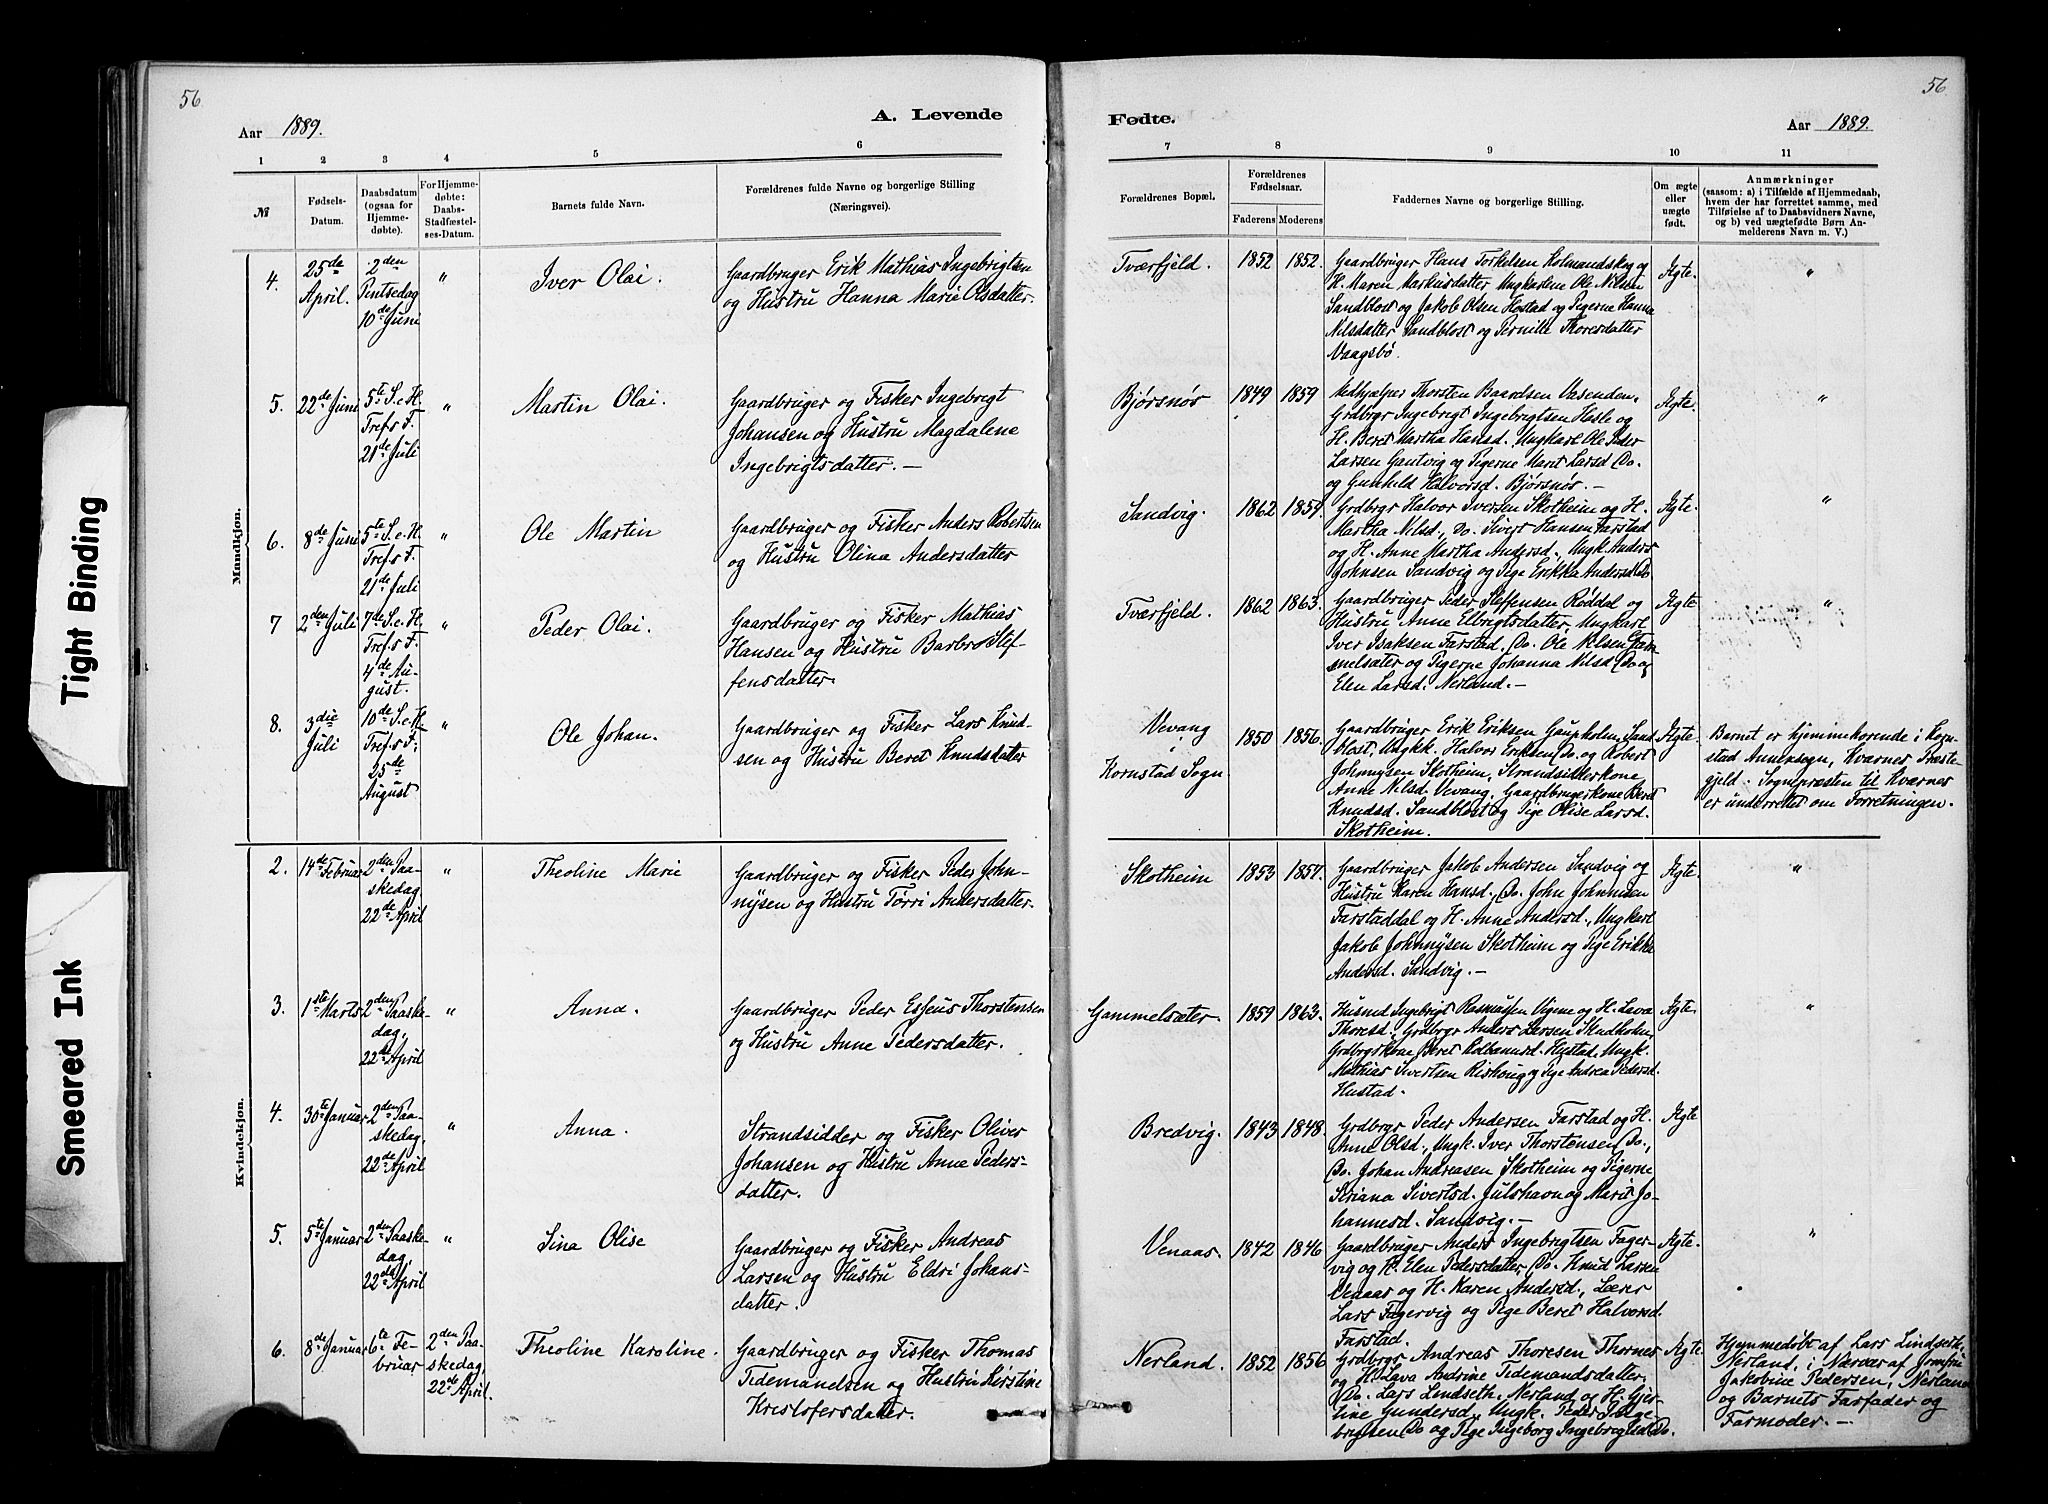 56
56
Aar 1889.
A. Levende
Fødte.
Aar 1889.
1 2 3 4 5 6 7 8 9 10 11
№
Fødsels-
Datum.
Daabsdatum
(ogsaa for
Hjemme-
døbte).
For Hjemme-
døbte:
Daabs-
Stadfæstel-
ses-Datum.
Barnets fulde Navn.
Forældrenes fulde Navne og borgerlige Stilling
(Næringsvei).
Forældrenes Bopæl.
Forældrenes
Fødselsaar.
Faderens Moderens
Faddernes Navne og borgerlige Stilling.
Om ægte
eller
uægte
født.
Anmærkninger
(saasom: a) i Tilfælde af Hjemmedaab,
hvem der har forrettet samme, med
Tilføielse af to Daabsvidners Navne,
og b) ved uægtefødte Børn An-
melderens Navn m. V.)
Mandkjøn.
4.
25de
April.
2den
Pintsedag
10de Juni
"
Iver Olai.
Gaardbruger Erik Mathias Ingebrigtsen
og Hustru Hanna Marie Olsdatter.
Tværfjeld.
1852 1852.
Gaardbruger Hans Torkelsen Holmandskog og
H. Maren Markusdatter, Ungkarlene Ole Nilsen
Sandblost og Jakob Olsen Hostad og Pigerne Hanna
Nilsdatter Sandblost og Pernille Thoresdatter
Vaagsbö.
Ægte.
"
5.
22de Juni
5te S. e. H.
Tref.s F.
21de Juli
"
Martin Olai.
Gaardbruger og Fisker Ingebregt
Johansen og Hustru Magdalene
Ingebrigtsdatter. —
Bjørsnøs
1849 1859
Medhjælper Thorsten Baardsen Vasenden,
Grdbrgr Ingebrigt Ingebrigtsen Hasle og
H. Beret Martha Hansd. Ungkarl Ole Peder
Larsen Gautvig og Pigerne Marit Larsd. Do.
og Gunhild Halvorsd. Bjørsnøs. —
Ægte.
"
6.
8de Juni
5te S. e. H.
Tref.s F.
21de Juli
"
Ole Martin
Gaardbruger og Fisker Anders Robertsen
og Hustru Olina Andersdatter
Sandvig.
1862 1857.
Grdbrgr Halvor Iversen Skotheim og H.
Martha Nilsd., Do. Sivert Hansen Farstad
og H. Anne Martha Andersd., Ungk. Anders
Johnsen Sandvig og Pige Erikka Andersd. Do.
Ægte.
"
7
2den Juli
7de S. e. H.
Tref.s F.
4de Au-
gust.
"
Peder Olai.
Gaardbruger og Fisker Mathias
Hansen og Hustru Barbro Stef-
fensdatter.
Tværfjeld.
1862 1863.
Gaardbruger Peder Steffensen Røddal og
Hustru Anne Elbrigtsdatter, Ungkarl
Iver Isaksen Farstad, Do. Ole Nilsen Gam-
melsæter og Pigerne Johanna Nilsd. Do og
Elen Larsd. Nerland. —
Ægte
"
8.
3die
Juli
10de S. e. H.
Tref.s F.
25de
August
"
Ole Johan.
Gaardbruger og Fisker Lars Knud-
sen og Hustru Beret Knudsdatter
Vevang
i
Kornstad Sogn
1850 1856.
Gaardbruger Erik Eriksen Gaupholm, Sand-
blost, Ungk. Halvor Eriksen Do. og Robert
Johnnysen Skotheim, Strandsidderkone
Anne Nilsd. Vevang, Gaardbrugerkone Beret
Knudsd. Sandblost og Pige Olise Larsd.
Skotheim.
Ægte.
Barnet er hjemmehørende i Korn-
stad Annexsogn, Kværnes Præste-
gjeld. Sognepræsten til Kværnes
er underrettet om Forretningen.
Kvindekjøn.
2.
14de Februar
2den Paa-
skedag
22de April
"
Theoline Marie
Gaardbruger og Fisker Peder John-
nysen og Hustru Törri Andersdatter.
Skotheim
1853 1857.
Gaardbruger Jakob Andersen Sandvig og
Hustru Karen Hansd., Do. John Johnnisen
Farstaddal og H. Anne Andersd., Ungkarl
Jakob Johnnysen Skotheim og Pige Erikka
Andersd. Sandvig. —
Ægte.
"
3.
1ste Marts
2den Paaske-
dag,
22de April
"
Anna
Gaardbruger Peder Espeus Thorstensen
og Hustru Anne Pedersdatter.
Gammelsæter.
1859 1863.
Husmd Ingebrigt Rasmussen Vigene og H. Lava
Thoresd., Grdbrgr Anders Larsen Skudholm,
Grdbrgrkone Beret Kolbeinsd. Hustad, Ungk.
Mathias Sivertsen Rishoug og Pige Andrea Pedersd.
Hustad.
Ægte.
"
4.
30te Januar
2den Paa-
skedag,
22de April
"
Anna.
Strandsidder og Fisker Oliver
Johansen og Hustru Anne Peders-
datter.
Bredvig.
1843 1848.
Grdbrgr Peder Andersen Farstad og H.
Anne Olsd., Ungk. Iver Thorstensen Do.,
Do. Johan Andreasen Skotheim og Pigerne
Siriana Sivertsd. Julshavn og Marit Jo-
hannesd. Sandvig. —
Ægte
5.
5te Januar
2den Paaske-
dag,
22de April
"
Sina Olise
Gaardbruger og Fisker Andreas
Larsen og Hustru Eldri Johans-
datter.
Venaas.
1842 1846
Gaardbruger Anders Ingebrigtsen Fager-
vig og H. Elen Pedersdatter, Do. Knud Larsen
Venaas og H. Karen Andersd., Lærer
Lars Fagervig og Pige Beret Halvorsd.
Farstad.
Ægte.
"
6.
8de Januar
6te Fe-
bruar
2den Paa-
skedag,
22de April.
Theoline Karoline.
Gaardbruger og Fisker Thomas
Tidemandsen og Hustru Kirstine
Kristofersdatter.
Nerland.
1852 1856
Grdbrgr Andreas Thoresen Thornes
og H. Lava Andrine Tidemandsdatter,
Do. Lars Lindseth, Nerland og H. Gjer-
tine Gundersd., Ungk. Peder Inge-
brigtsen Do og Pige Ingeborg Ingebrigtsd. Do.
Ægte.
Hjemmedøbt af Lars Lindseth,
Nerland, i Nærvær af Jomfru
Jakobine Pedersen, Nerland
og Barnets Farfader og
Farmoder. —
Tight Binding
Smeared Ink